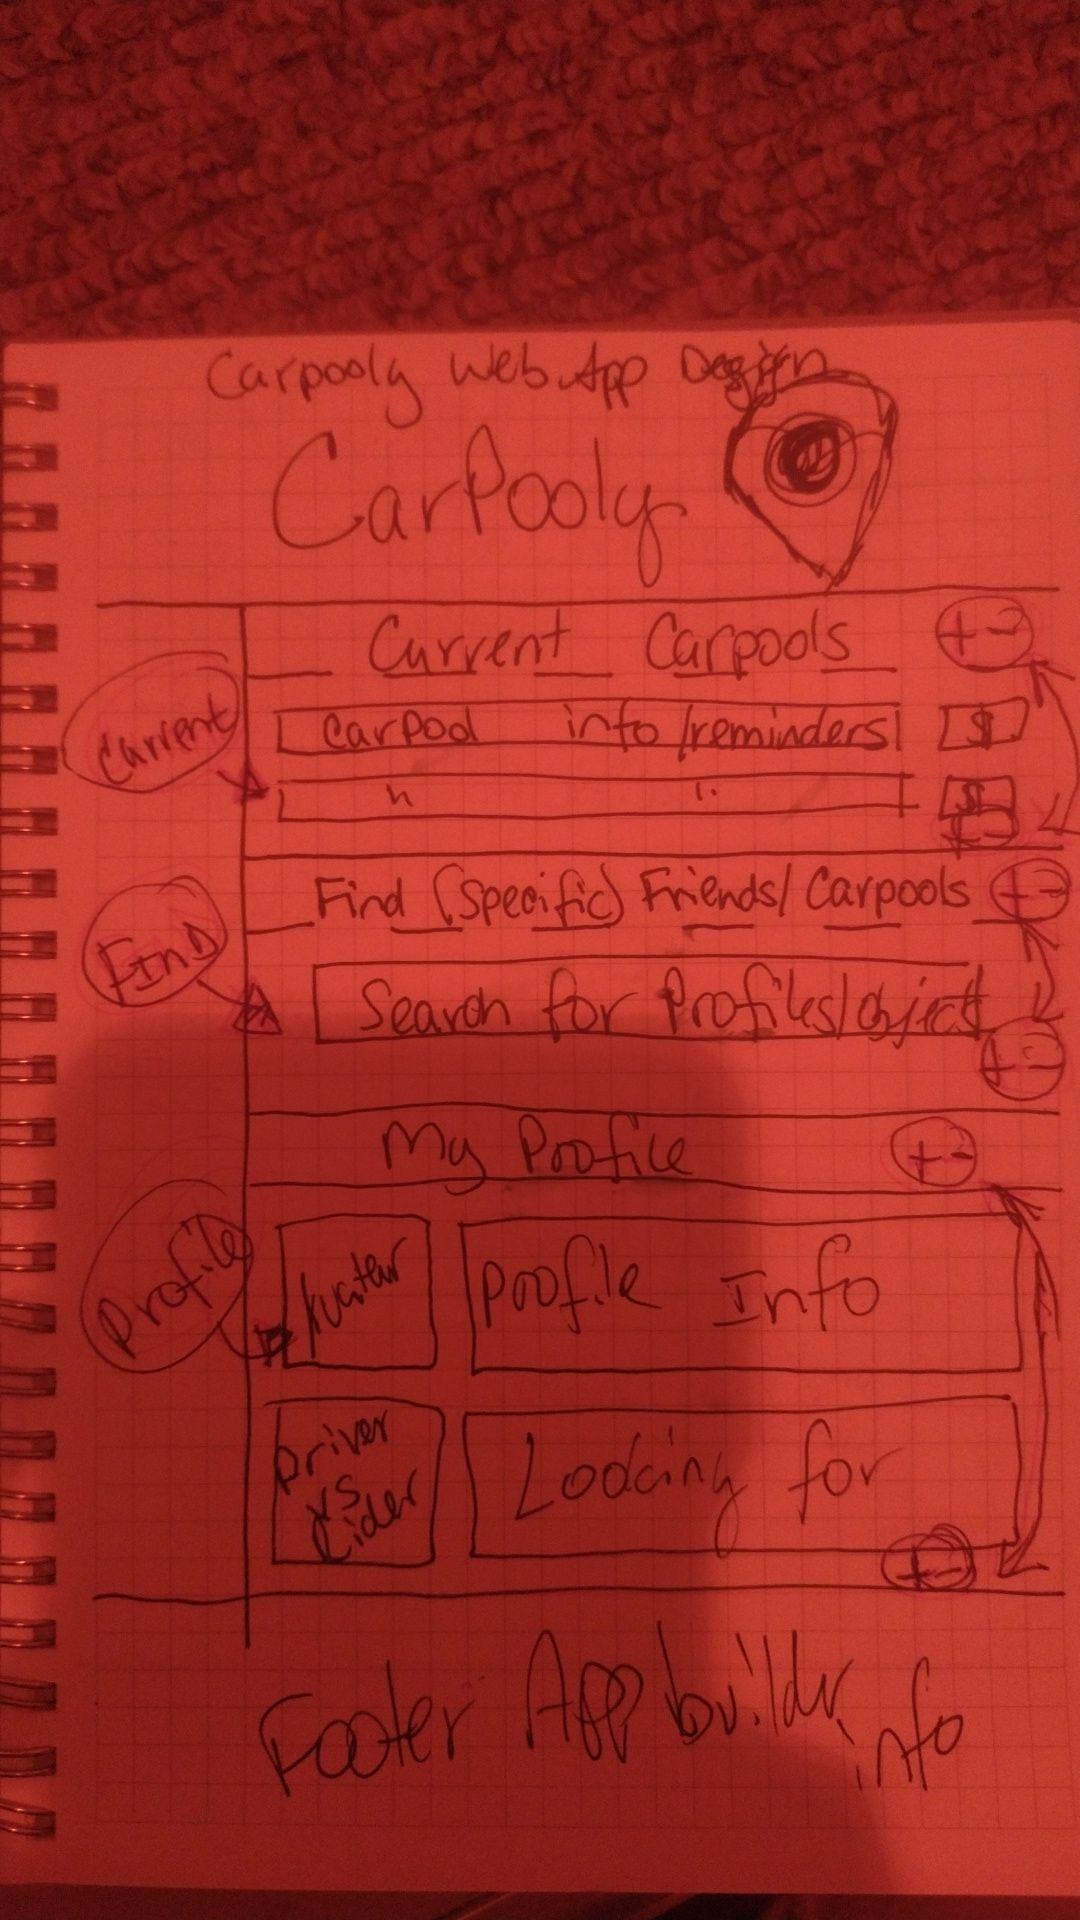 Carpooly Web App Design
CarPooly
Current Carpools + -
Current
Carpool info/reminders $
" " $
+ -
Find (Specific) Friends/Carpools + -
Find
Search for Profiles/object
+ -
My Profile + -
Profile
Profile Info
Driver
vs
Rider
Looking for
+ -
Footer App builder
info